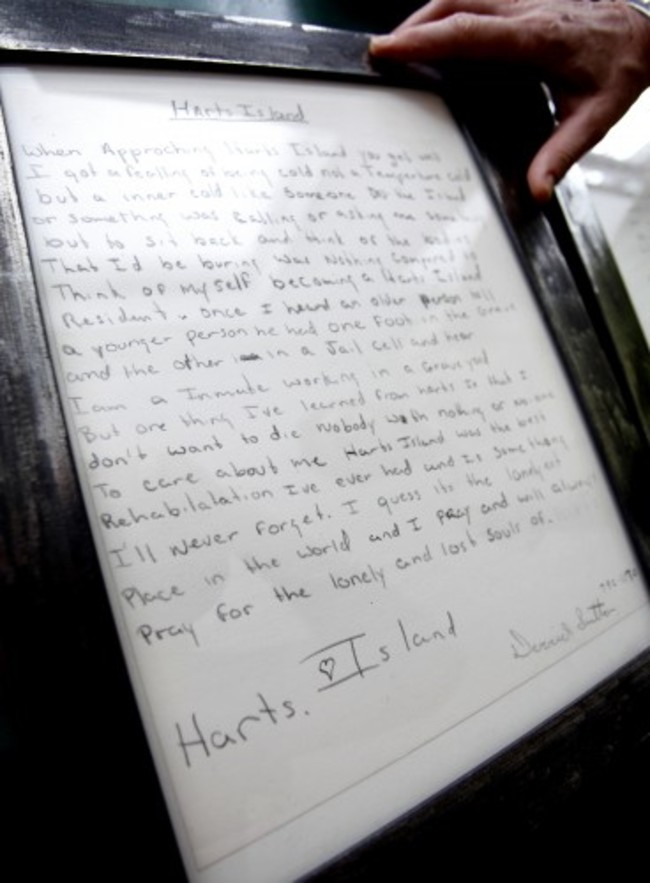 Harts Island
When Approching Harts Island you get
I got a feeling of being cold not a Temperture cold
but a inner cold like someone
or something was Calling or asking me
but to sit back and think of the
That I'd be buring was Nothing Compared to
Think of Myself becoming a Harts Island
Resident. once I heard an older person tell
a younger person he had one Foot in the Grave
and the other in a Jail Cell and hear
I am a Inmate working in a Graveyard
But one thing I've learned from harts is that I
don't want to die Nobody with nothing or no one
To care about me Harts Island was the best
Rehabilatation I've ever had and Is something
I'll Never Forget. I guess its the lonlyest
Place in the world and I pray and will always
Pray for the lonely and lost souls of.
Harts. Island